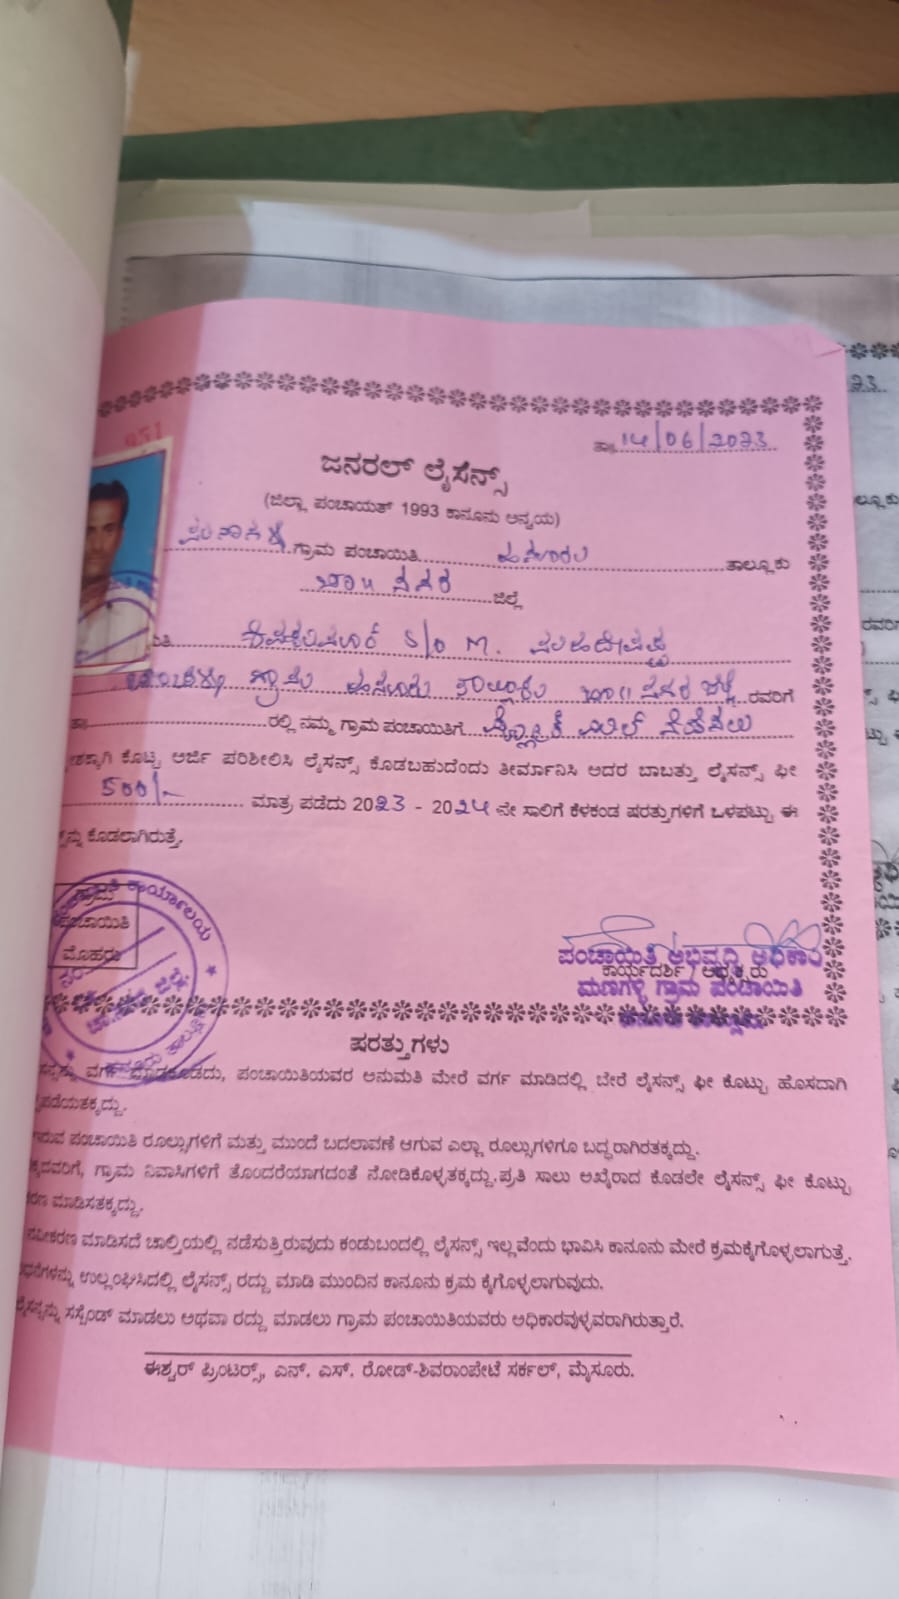 ತಾ॥ 14/06/2023
ಜನರಲ್ ಲೈಸೆನ್ಸ್
(ಜಿಲ್ಲಾ ಪಂಚಾಯತ್ 1993 ಕಾನೂನು ಅನ್ವಯ)
ಗ್ರಾಮ ಪಂಚಾಯಿತಿ ಹನೂರು ತಾಲ್ಲೂಕು
ನಗರ ಜಿಲ್ಲೆ
S/o M.
ಗ್ರಾಮ ಹನೂರು ತಾಲ್ಲೂಕು ನಗರ ಜಿಲ್ಲೆ ರವರಿಗೆ
ತಾ॥ ರಲ್ಲಿ ನಮ್ಮ ಗ್ರಾಮ ಪಂಚಾಯಿತಿಗೆ ನೆಡೆಸಲು
ಕೊಟ್ಟ ಅರ್ಜಿ ಪರಿಶೀಲಿಸಿ ಲೈಸೆನ್ಸ್ ಕೊಡಬಹುದೆಂದು ತೀರ್ಮಾನಿಸಿ ಅದರ ಬಾಬತ್ತು ಲೈಸೆನ್ಸ್ ಫೀ
500/- ಮಾತ್ರ ಪಡೆದು 2023 - 2024 ನೇ ಸಾಲಿಗೆ ಕೆಳಕಂಡ ಷರತ್ತುಗಳಿಗೆ ಒಳಪಟ್ಟು ಈ
ಕೊಡಲಾಗಿರುತ್ತೆ.
ಗ್ರಾಮ
ಪಂಚಾಯಿತಿ
ಮೊಹರು
ಕಾರ್ಯಾಲಯ
ಪಂಚಾಯಿತಿ ಅಭಿವೃದ್ಧಿ ಅಧಿಕಾರಿ
ಕಾರ್ಯದರ್ಶಿ / ಅಧ್ಯಕ್ಷರು
ಮಣಗಳ್ಳಿ ಗ್ರಾಮ ಪಂಚಾಯಿತಿ
ಷರತ್ತುಗಳು
ವರ್ಗ ಮಾಡಕೂಡದು, ಪಂಚಾಯಿತಿಯವರ ಅನುಮತಿ ಮೇರೆ ವರ್ಗ ಮಾಡಿದಲ್ಲಿ ಬೇರೆ ಲೈಸೆನ್ಸ್ ಫೀ ಕೊಟ್ಟು ಹೊಸದಾಗಿ
ಪಡೆಯತಕ್ಕದ್ದು.
ಪಂಚಾಯಿತಿ ರೂಲ್ಸುಗಳಿಗೆ ಮತ್ತು ಮುಂದೆ ಬದಲಾವಣೆ ಆಗುವ ಎಲ್ಲಾ ರೂಲ್ಸುಗಳಿಗೂ ಬದ್ಧರಾಗಿರತಕ್ಕದ್ದು.
ಗ್ರಾಮ ನಿವಾಸಿಗಳಿಗೆ ತೊಂದರೆಯಾಗದಂತೆ ನೋಡಿಕೊಳ್ಳತಕ್ಕದ್ದು. ಪ್ರತಿ ಸಾಲು ಅಖೈರಾದ ಕೊಡಲೇ ಲೈಸೆನ್ಸ್ ಫೀ ಕೊಟ್ಟು
ಮಾಡಿಸತಕ್ಕದ್ದು.
ನವೀಕರಣ ಮಾಡಿಸದೆ ಚಾಲ್ತಿಯಲ್ಲಿ ನಡೆಸುತ್ತಿರುವುದು ಕಂಡುಬಂದಲ್ಲಿ ಲೈಸೆನ್ಸ್ ಇಲ್ಲವೆಂದು ಭಾವಿಸಿ ಕಾನೂನು ಮೇರೆ ಕ್ರಮಕೈಗೊಳ್ಳಲಾಗುತ್ತೆ.
ಉಲ್ಲಂಘಿಸಿದಲ್ಲಿ ಲೈಸೆನ್ಸ್ ರದ್ದು ಮಾಡಿ ಮುಂದಿನ ಕಾನೂನು ಕ್ರಮ ಕೈಗೊಳ್ಳಲಾಗುವುದು.
ಸಸ್ಪೆಂಡ್ ಮಾಡಲು ಅಥವಾ ರದ್ದು ಮಾಡಲು ಗ್ರಾಮ ಪಂಚಾಯಿತಿಯವರು ಅಧಿಕಾರವುಳ್ಳವರಾಗಿರುತ್ತಾರೆ.
ಈಶ್ವರ್ ಪ್ರಿಂಟರ್ಸ್, ಎನ್. ಎಸ್. ರೋಡ್-ಶಿವರಾಂಪೇಟೆ ಸರ್ಕಲ್, ಮೈಸೂರು.